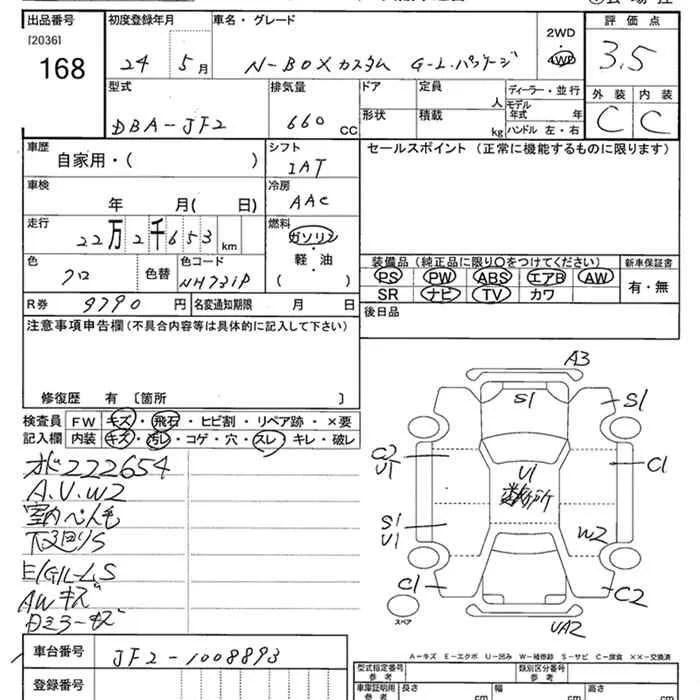 出品番号 初度登録年月 車名・グレード 2WD ・ 4WD 評価点
[2036]
168
24 5月 N-BOXカスタム G-L.パッケージ 3.5
型式 排気量 ドア 定員 人 ディーラー・並行 外装 内装
DBA-JF2 660 CC 形状 積載 kg モデル年式 年 C C
ハンドル 左・右
車歴 シフト セールスポイント(正常に機能するものに限ります)
自家用・( ) IAT
車検 冷房
年 月( 日) AAC
走行 燃料
22万2千653km ガソリン
軽・油
( )
色 色替 色コード 装備品(純正品に限り○をつけてください) 新車保証書
クロ NH731P PS PW ABS エアB AW 有・無
SR ナビ TV カワ
R券 9790円 名変通知期限 月 日 後日品
注意事項申告欄(不具合内容等は具体的に記入して下さい)
修復歴 有 〔箇所 〕
検査員 FW キズ・飛石・ヒビ割・リペア跡・×要
記入欄 内装 キズ・汚レ・コゲ・穴・スレ・キレ・破レ
オド222654
A.U.W2
室内ペん毛
下廻りS
E/G/L-LS
AWキズ
Dミラーキズ
A3
S1
S1
C2
U1
C1
U1
S1
U1
W2
C1
C2
スペア
UA2
A-キズ E-エクボ U-凹み W-補修跡 S-サビ C-腐食 ××-交換済
車台番号 JF2-1008893
登録番号
型式指定番号 参考 類別区分番号 参考
車庫証明用 参考 長さ cm 幅 cm 高さ cm